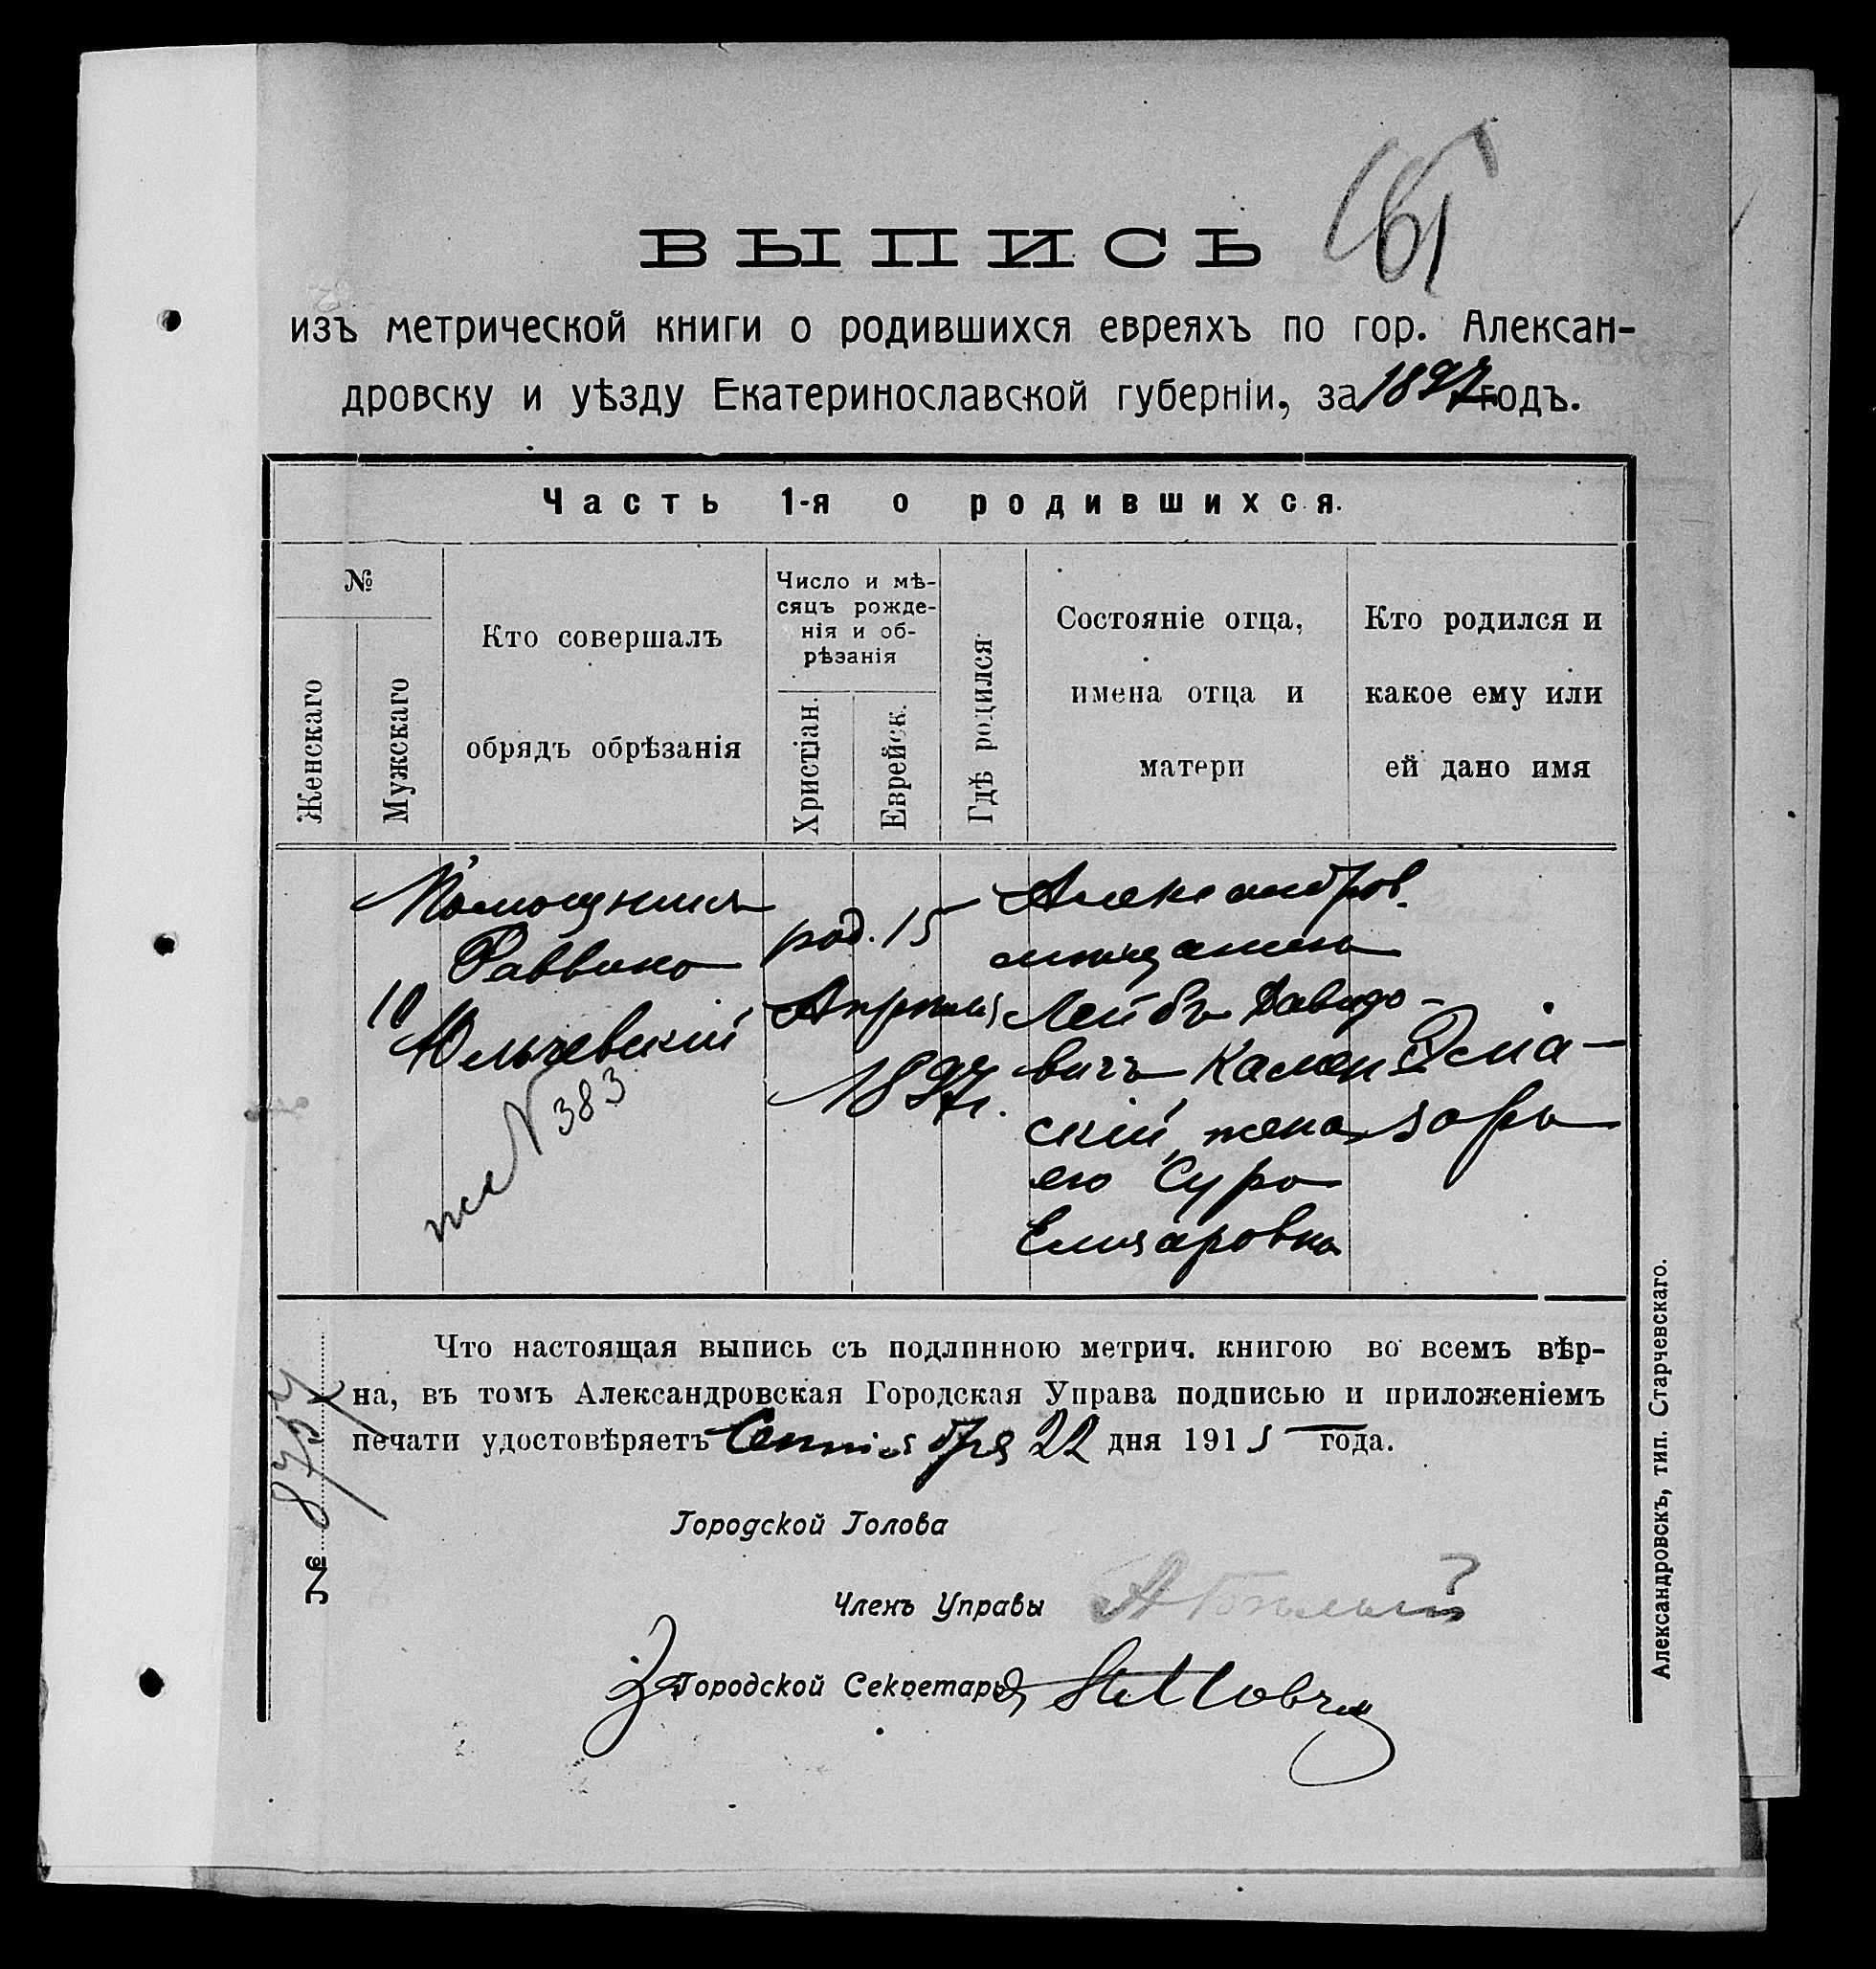 ВЫПИСЬ
изъ метрической книги о родившихся евреяхъ по гор. Алексан-
дровску и уѣзду Екатеринославской губерніи, за 1897 годъ.
Часть 1-я о родившихся.
№
Женскаго
Мужскаго
Кто совершалъ
обрядъ обрѣзанія
Число и мѣ-
сяцъ рожде-
нія и об-
рѣзанія
Христіан.
Еврейск.
Гдѣ родился
Состояніе отца,
имена отца и
матери
Кто родился и
какое ему или
ей дано имя
10
Помощникъ
Раввина
Юльчевскій
№ 383
род. 15
Апрѣля
1897г.
Александров.
мѣщанинъ
Лейбъ Давидо-
вичъ Камен
скій, жена
его Сура
Елизаровна
заръ
Что настоящая выпись съ подлинною метрич. книгою во всемъ вѣр-
на, въ томъ Александровская Городская Управа подписью и приложеніемъ
печати удостовѣряетъ Сентября 22 дня 1915 года.
№ 8734
Городской Голова
Членъ Управы
За Городской Секретарь
Александровскъ, тип. Старчевскаго.